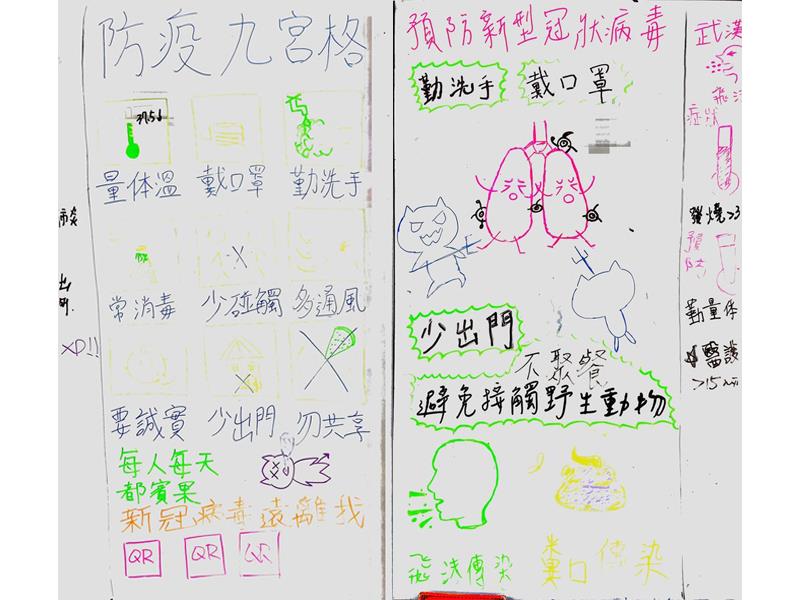 防疫九宮格
37.5↓
量体溫 戴口罩 勤洗手
常消毒 少碰觸 多通風
要誠實 少出門 勿共享
每人每天
都賓果
新冠病毒遠離我
QR QR QR
XD!!
預防新型冠狀病毒
勤洗手 戴口罩
少出門
不聚餐
避免接觸野生動物
飛沫傳染
糞口傳染
武漢
飛沫
症狀
發燒>3
預防
勤量体
醫護